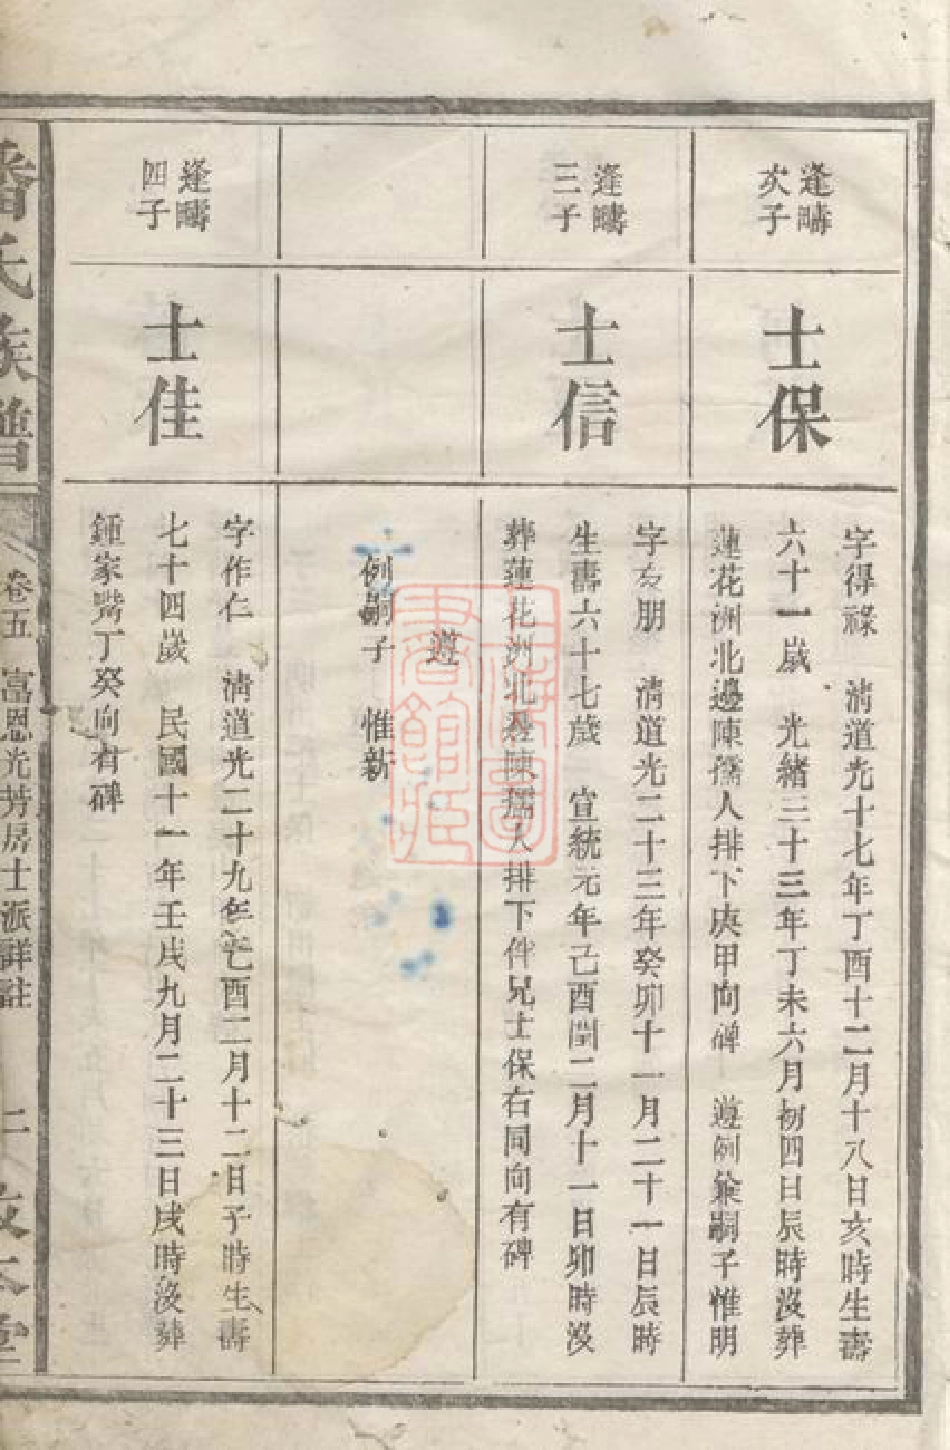 逢疇
次子
士保
字得祿 清道光十七年丁酉十二月十八日亥時生壽
六十一歲 光緒三十三年丁未六月初四日辰時沒葬
蓮花洲北邊陳孺人排下庚甲向碑 遵例兼嗣子惟明
逢疇
三子
士信
字友朋 清道光二十三年癸卯十一月二十一日辰時
生壽六十七歲 宣統元年己酉閏二月十一日卯時沒
葬蓮花洲北邊陳孺人排下伴兄士保右同向有碑
遵
例嗣子 惟新
逢疇
四子
士佳
字作仁 清道光二十九年己酉二月十二日子時生壽
七十四歲 民國十一年壬戌九月二十三日戌時沒葬
鍾家嘴丁癸向有碑
潘氏族譜
卷五 富恩光芳居士派詳註